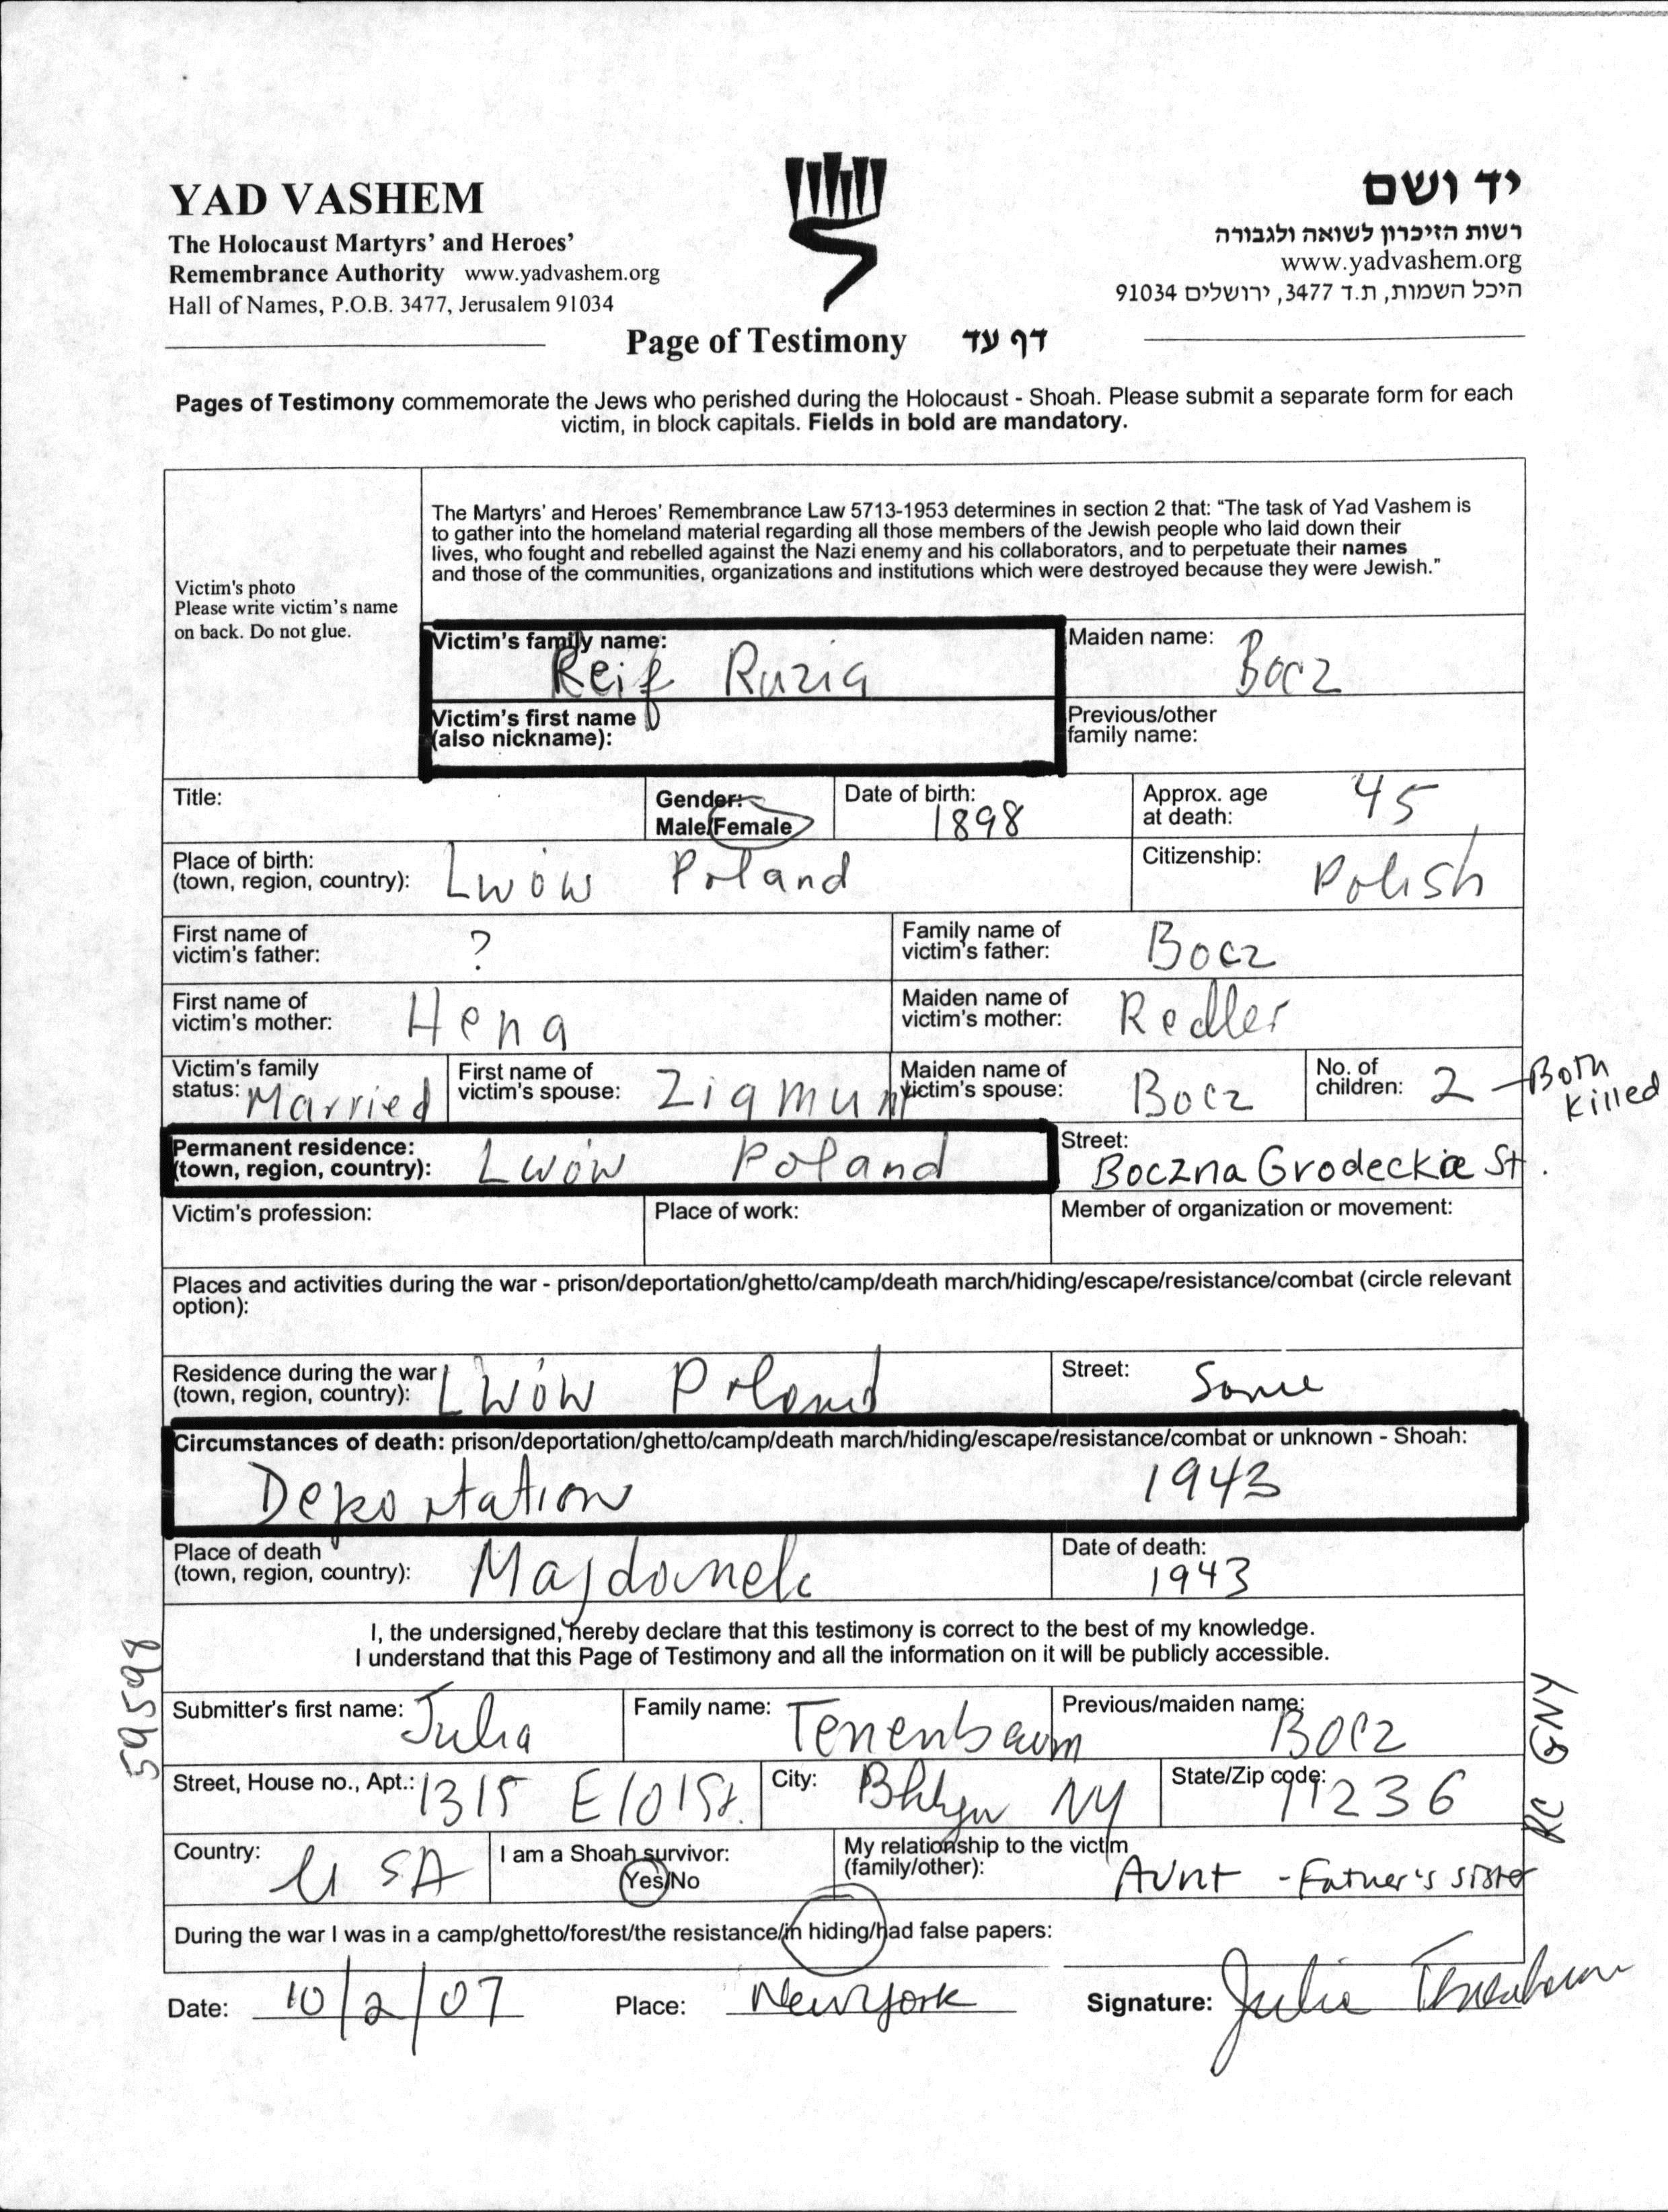 YAD VASHEM
The Holocaust Martyrs' and Heroes'
Remembrance Authority www.yadvashem.org
Hall of Names, P.O.B. 3477, Jerusalem 91034
יד ושם
רשות הזיכרון לשואה ולגבורה
www.yadvashem.org
היכל השמות, ת.ד 3477, ירושלים 91034
Page of Testimony דף עד
Pages of Testimony commemorate the Jews who perished during the Holocaust - Shoah. Please submit a separate form for each
victim, in block capitals. Fields in bold are mandatory.
The Martyrs' and Heroes' Remembrance Law 5713-1953 determines in section 2 that: “The task of Yad Vashem is
to gather into the homeland material regarding all those members of the Jewish people who laid down their
lives, who fought and rebelled against the Nazi enemy and his collaborators, and to perpetuate their names
and those of the communities, organizations and institutions which were destroyed because they were Jewish.”
Victim's photo
Please write victim's name
on back. Do not glue.
Victim's family name: Reif Ruzia
Maiden name: Bocz
Victim's first name
(also nickname):
Previous/other
family name:
Title:
Gender:
Male/Female
Date of birth: 1898
Approx. age
at death: 45
Place of birth:
(town, region, country): Lwów Poland
Citizenship: Polish
First name of
victim's father: ?
Family name of
victim's father: Bocz
First name of
victim's mother: Hena
Maiden name of
victim's mother: Redler
Victim's family
status: Married
First name of
victim's spouse: Zigmunt
Maiden name of
victim's spouse: Bocz
No. of
children: 2 - Both
killed
Permanent residence:
(town, region, country): Lwów Poland
Street:
Boczna Grodeckie St.
Victim's profession:
Place of work:
Member of organization or movement:
Places and activities during the war - prison/deportation/ghetto/camp/death march/hiding/escape/resistance/combat (circle relevant
option):
Residence during the war
(town, region, country): Lwów Poland
Street: Same
Circumstances of death: prison/deportation/ghetto/camp/death march/hiding/escape/resistance/combat or unknown - Shoah:
Deportation 1943
Place of death
(town, region, country): Majdanek
Date of death:
1943
I, the undersigned, hereby declare that this testimony is correct to the best of my knowledge.
I understand that this Page of Testimony and all the information on it will be publicly accessible.
59598
RC GNY
Submitter's first name: Julia
Family name: Tenenbaum
Previous/maiden name: Bocz
Street, House no., Apt.: 1315 E 101 St.
City: Bklyn NY
State/Zip code: 11236
Country: USA
I am a Shoah survivor:
Yes/No
My relationship to the victim
(family/other): Aunt - Father's sister
During the war I was in a camp/ghetto/forest/the resistance/in hiding/had false papers:
Date: 10/2/07
Place: New York
Signature: Julia Tenenbaum